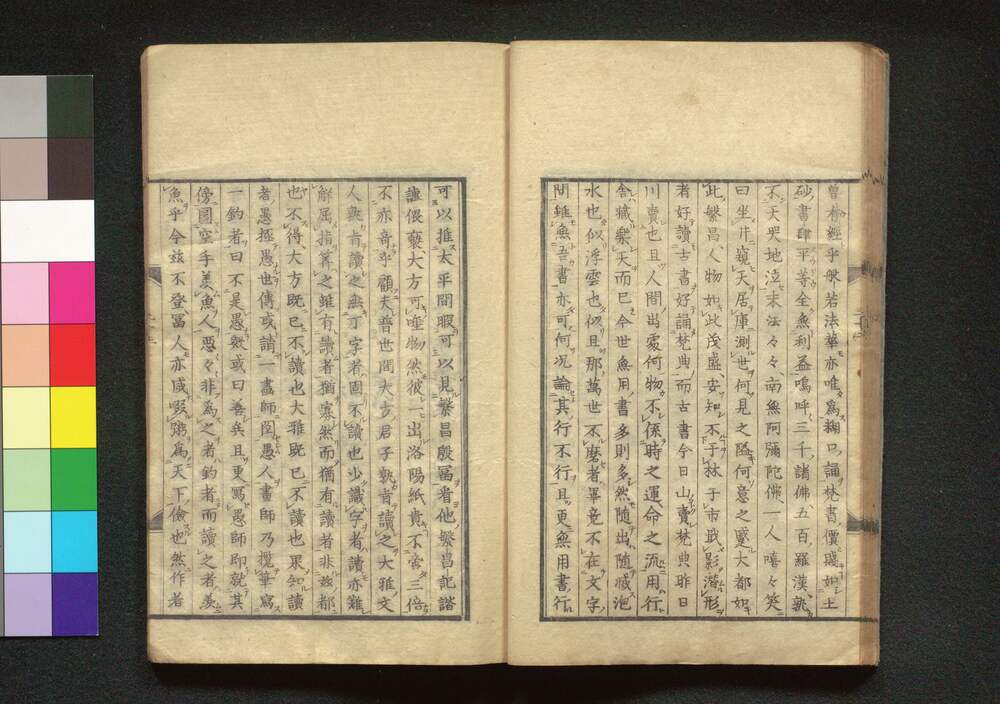 曽有經乎般若法華亦唯爲糊口誦梵書價賤如土
砂書肆平等全無利益嗚呼三千諸佛五百羅漢孰
不天哭地泣末法々々南無阿彌陀佛一人嘻々笑
曰坐井窺天居庫測世何見之隘何意之
大都如
此繁昌人物如此茂盛安知不于林于市戢影潛形
者好讀古書好誦梵典而古書今日山賣梵典昨日
川賣也且人間出處何物不係時之運命之流用行
舍藏樂天而已今世無用書多則多然隨出隨滅泡
水也似浮雲也似且那萬世不磨者畢竟不在文字
間雖無吾書亦可何况論其行不行且更無用書行
可以推太平間暇可以見繁昌殷冨看他繁昌記諧
謔偎褻大方可唾物然彼一出洛陽紙貴不啻三倍
不亦奇乎顧夫普世間大方君子孰肯讀之大雅文
人孰肯讀之無丁字者固不讀也少識字者讀亦難
解屈指算之雖有讀者猶寡然而猶有讀者非故都
也不得大方既已不讀也大雅既已不讀也果知讀
者愚極愚也傳或請一畵師図愚人畫師乃攬筆寫
一釣者曰不是愚歟或曰善矣且更寫愚師即就其
傍圖空手羨魚人惡々非爲之者釣者而讀之者羨
魚乎今玆不登冨人亦咸啜粥爲天下儉也然作者